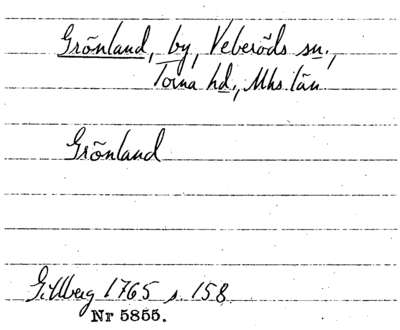 Grönland, by, Veberöds sn.,
Torna hd., Mhs. län
Grönland
Gillberg 1765 s. 158.
Nr 5855.